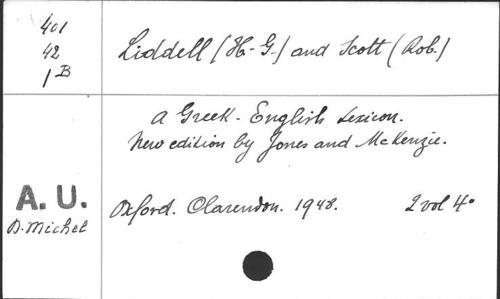 401
42
1B
Liddell (H-G.) and Scott (Rob.)
A Greek-English Lexicon.
New edition by Jones and McKenzie.
A. U.
D. Michel
Oxford. Clarendon. 1948. 2 vol 4°